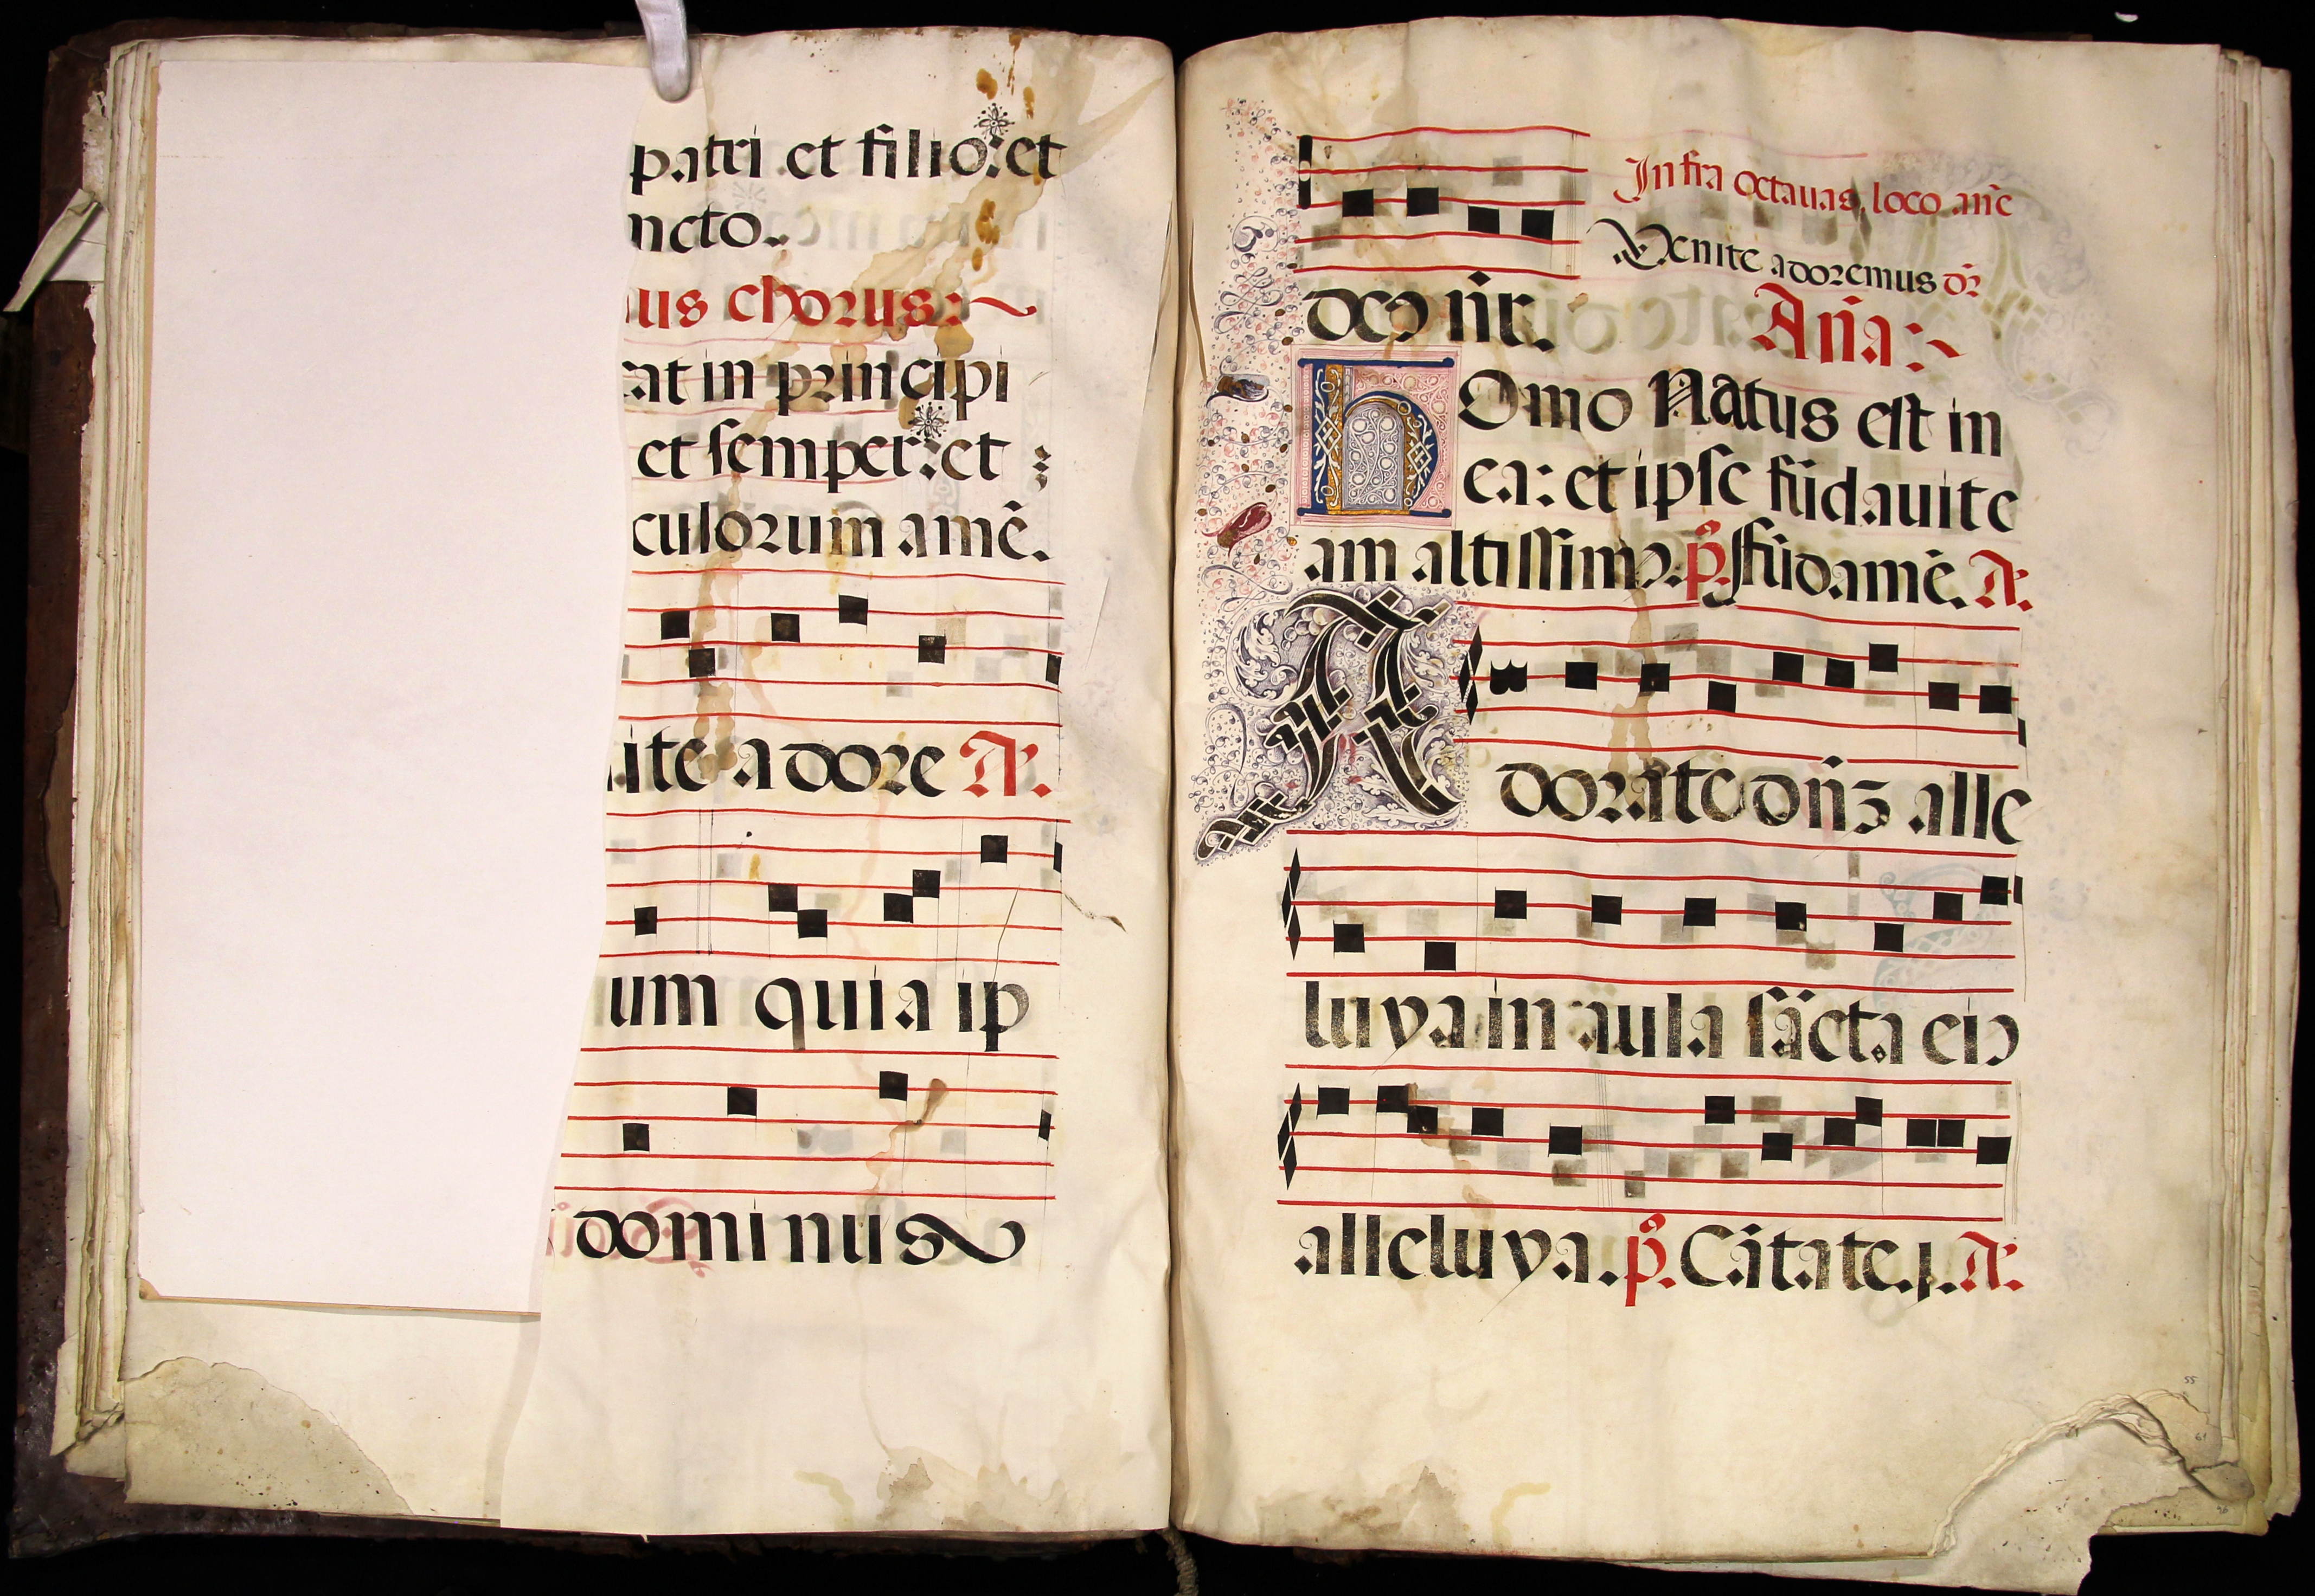 patri et filio: et
ncto.
us chorus:
at in principi
et semper: et
culorum amē.
ite adore A.
um quia ip
dominus
Infra octauas, loco añe
Venite adoremus
deꝰ nr̄.
Aña:
hOmo Natus est in
ea: et ipse fūdauit e
am altissimꝰ. p̄s. fūdamē. A.
Adorate dn̄ꝫ alle
luya in aula sācta eiꝰ
alleluya. p̄s. Cātate. j. A.
55
61